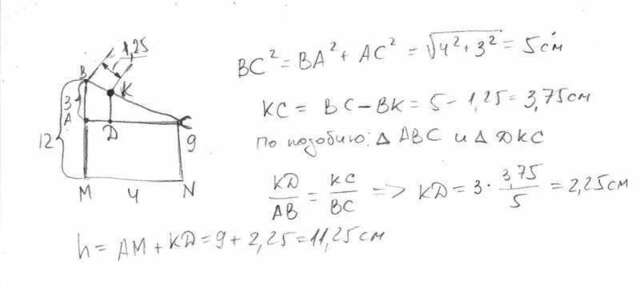 1,25
B
K
3
A
D
C
12
9
M
4
N
BC² = BA² + AC² = √4²+3² = 5 см
KC = BC − BK = 5 − 1,25 = 3,75 см
По подобию: △ ABC и △ DKC
KD/AB = KC/BC => KD = 3 · 3,75/5 = 2,25 см
h = AM + KD = 9 + 2,25 = 11,25 см